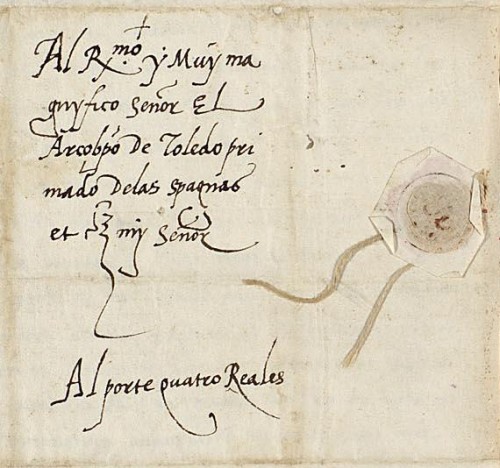 Al R.mo y Muy ma
gnyfico Señor El
Arcobpo de Toledo pri
mado delas spagnas
et cz my Señor
Al porte quatro Reales